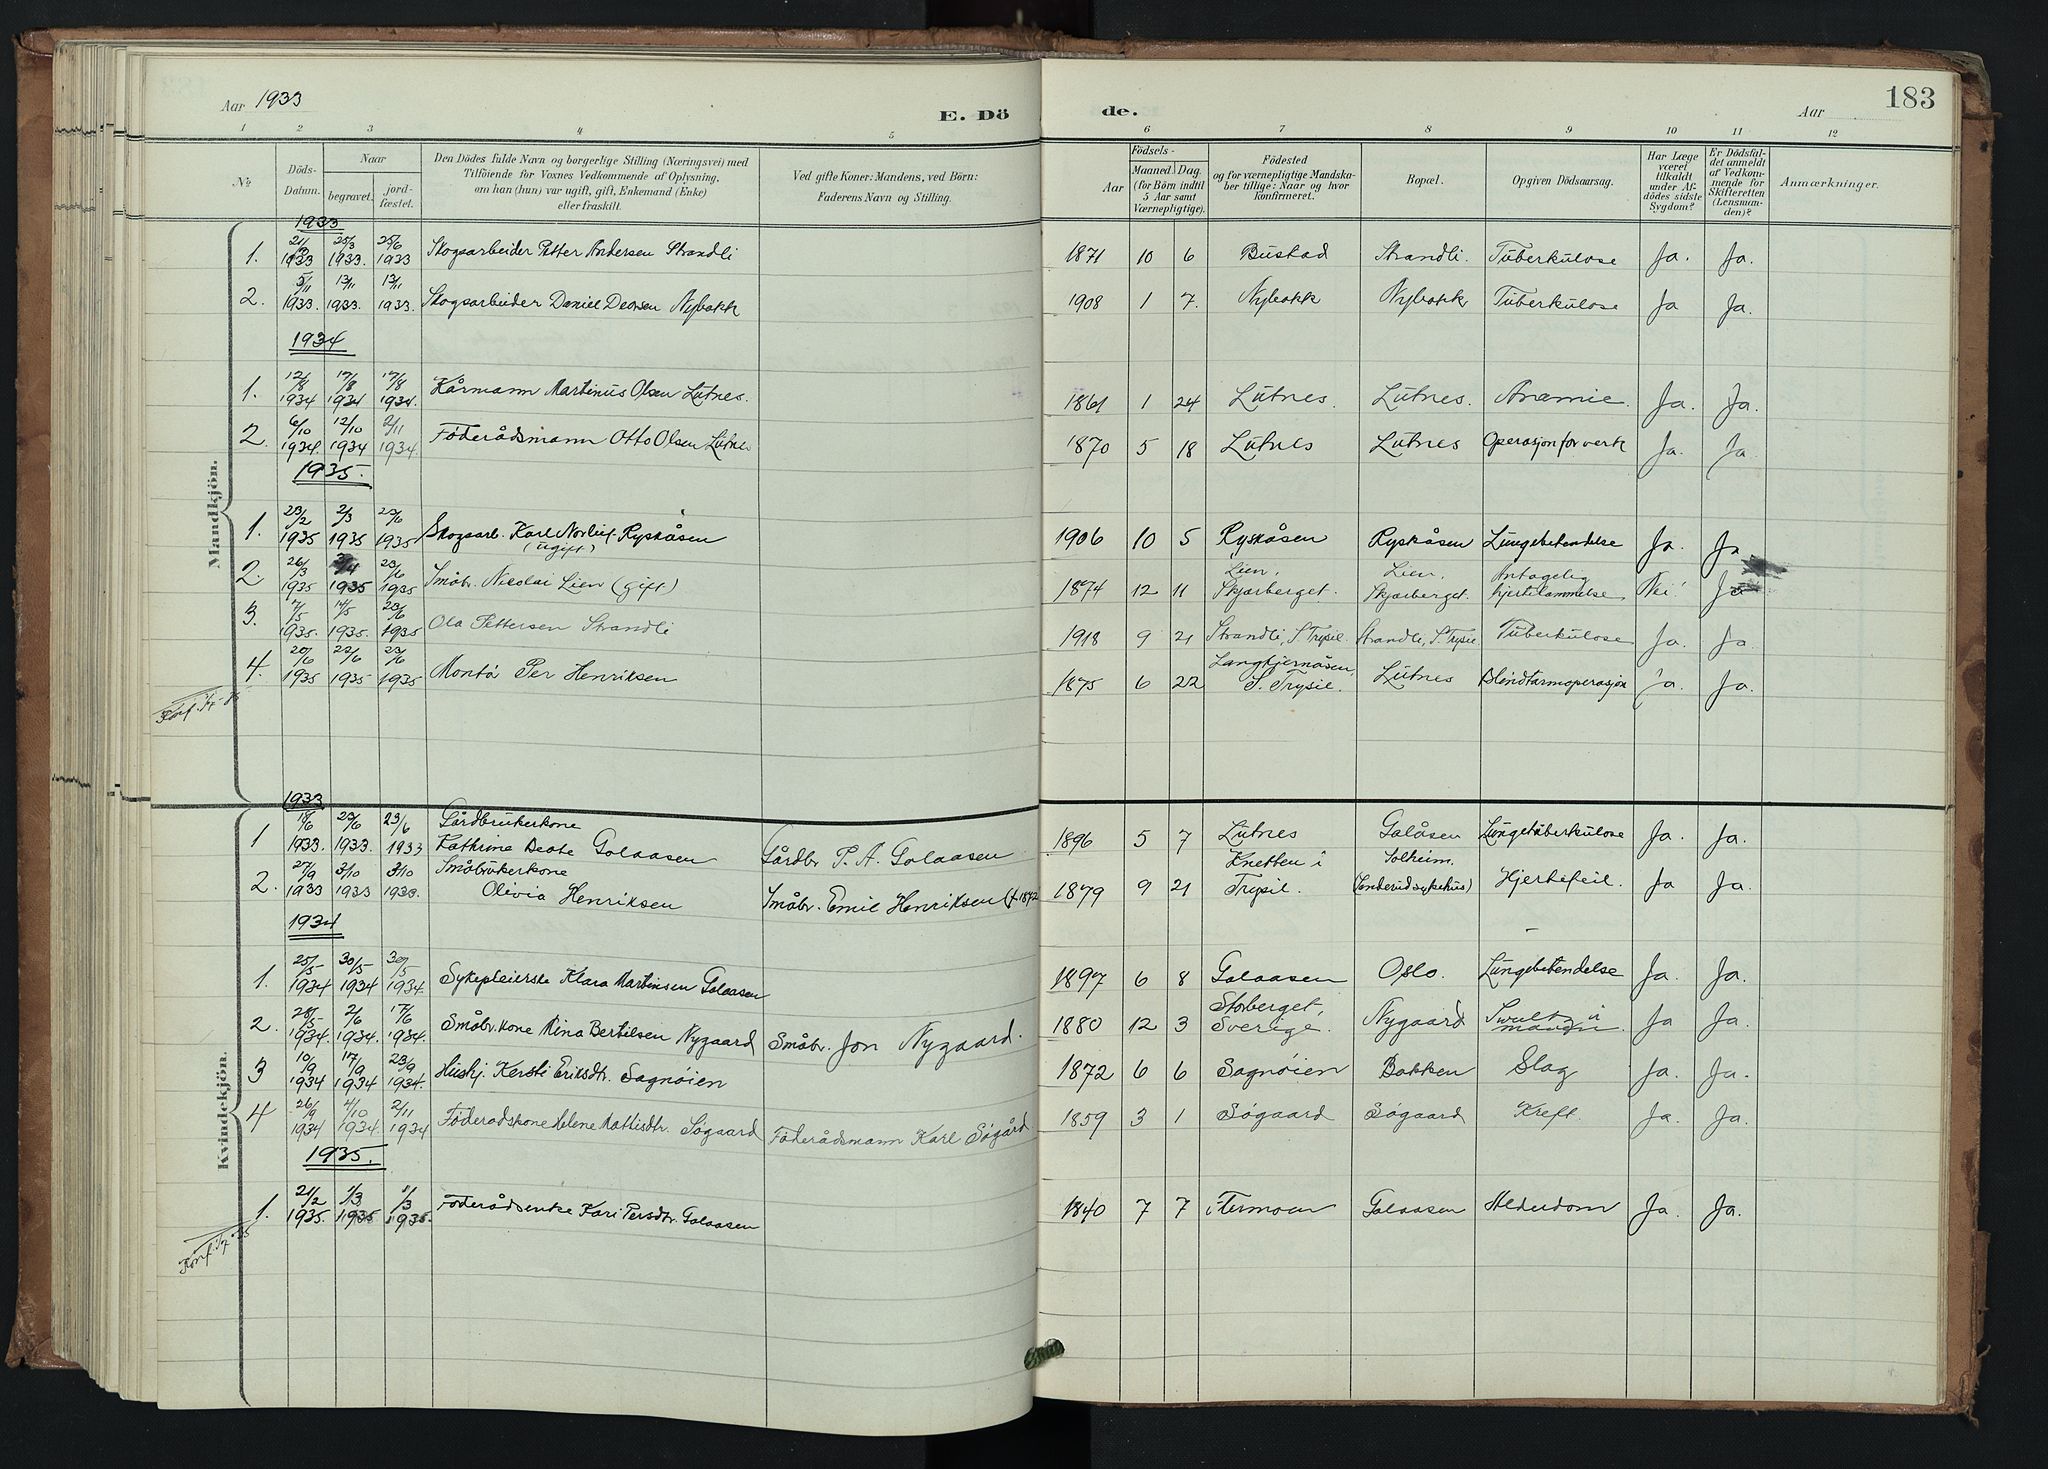 Aar 1933
E. Dö de.
Aar
183
1 2 3 4 5 6 7 8 9 10 11 12
№
Döds-Datum.
Naar
begravet.
jord-fæstet.
Den Dödes fulde Navn og borgerlige Stilling (Næringsvei) med
Tilföiende for Voxnes Vedkommende af Oplysning,
om han (hun) var ugift, gift, Enkemand (Enke)
eller fraskilt.
Ved gifte Koner: Mandens, ved Börn:
Faderens Navn og Stilling.
Födsels-
Aar
Maaned. Dag.
(for Börn indtil
5 Aar samt
Værnepligtige).
Födested
og for værnepligtige Mandska-
ber tillige: Naar og hvor
konfirmeret.
Bopæl.
Opgiven Dödsaarsag.
Har Læge
været
tilkaldt
under Af-
dödes sidste
Sygdom?
Er Dödsfal-
det anmeldt
af Vedkom-
mende for
Skifteretten
(Lensman-
den)?
Anmærkninger.
Mandkjön.
1933
1. 21/3 1933 25/3 1933. 25/6 1933 Skogsarbeider Petter Andersen Strandli 1871 10 6 Bustad Strandli. Tuberkulose Ja. Ja.
2. 5/11 1933. 13/11 1933. 13/11 1933. Skogsarbeider Daniel Nybakk 1908 1 7. Nybakk Nybakk Tuberkulose Ja Ja.
1934
1. 12/8 1934 17/8 1934 17/8 1934. Kårmann Martinus Olsen Lutnes. 1861 1 24 Lutnes. Lutnes. Anæmie. Ja. Ja.
2. 6/10 1934. 12/10 1934 2/11 1934. Föderådsmann Otto Olsen Lutnes 1870 5 18 Lutnes Lutnes Operasjon for verk Ja. Ja.
1935.
1. 23/2 1935 2/3 1935 23/6 1935 Skogsarb. Karl Norleif Ryskåsen
(ugift) 1906 10 5 Ryskåsen Ryskåsen Lungebetendelse Ja. Ja
2. 26/3 1935 1935 23/6 1935 Småbr. Nicolai Lien (gift) 1874 12 11 Lien, Skjærberget. Lien, Skjærberget. Antagelig hjertelammelse Nei! Ja
3. 7/5 1935. 14/5 1935. 23/6 1935 Ola Pettersen Strandli 1918 9 21 Strandli, S. Trysil. Strandli, S. Trysil Tuberkulose Ja. Ja.
4. 20/6 1935 22/6 1935 23/6 1935 Montø Per Henriksen 1875 6 22 Langtjernåsen, S. Trysil. Lutnes Blindtarmoperasjon Ja. Ja.
Konf. 1/7-35
Kvindekjön.
1933
1 18/6 1933. 23/6 1933. 23/6 1933 Gårdbrukerkone
Kathrine Beate Galaasen Gårdbr. P. A. Galaasen 1896 5 7 Lutnes Galåsen Lungetuberkulose Ja. Ja.
2. 27/9 1933 3/10 1933 3/10 1933. Småbrukerkone
Olivia Henriksen Småbr. Emil Henriksen (f. 1872 1879 9 21 Knetten i Trysil. Solheim. (Sanderud sykehus) Hjertefeil. Ja Ja.
1934
1. 25/5 1934 30/5 1934 30/5 1934. Sykepleierske Klara Martinsen Galaasen 1897 6 8 Galaasen Oslo. Lungebetendelse Ja. Ja.
2. 28/5 1934. 2/6 1934. 17/6 1934. Småbr.kone Mina Bertilsen Nygaard Småbr. Jon Nygaard. 1880 12 3 Støberget, Sverige. Nygaard Svulst i maven. Ja Ja.
3 10/9 1934 17/9 1934 23/9 1934. Hushj. Kersti Eriksdtr. Sagnøien 1872 6 6 Sagnøien Bakken Slag Ja. Ja.
4 26/9 1934 4/10 1934. 2/11 1934 Föderadskone Helene Mattisdtr. Søgaard Föderådsmann Karl Søgård 1859 3 1 Søgaard Søgaard Kreft. Ja. Ja.
1935.
1. 21/2 1935. 1/3 1935 1/3 1935. Föderådsenke Kari Persdtr. Galaasen 1840 7 7 i Termoen Galaasen Alderdom Ja. Ja.
Konf. 1/7-35